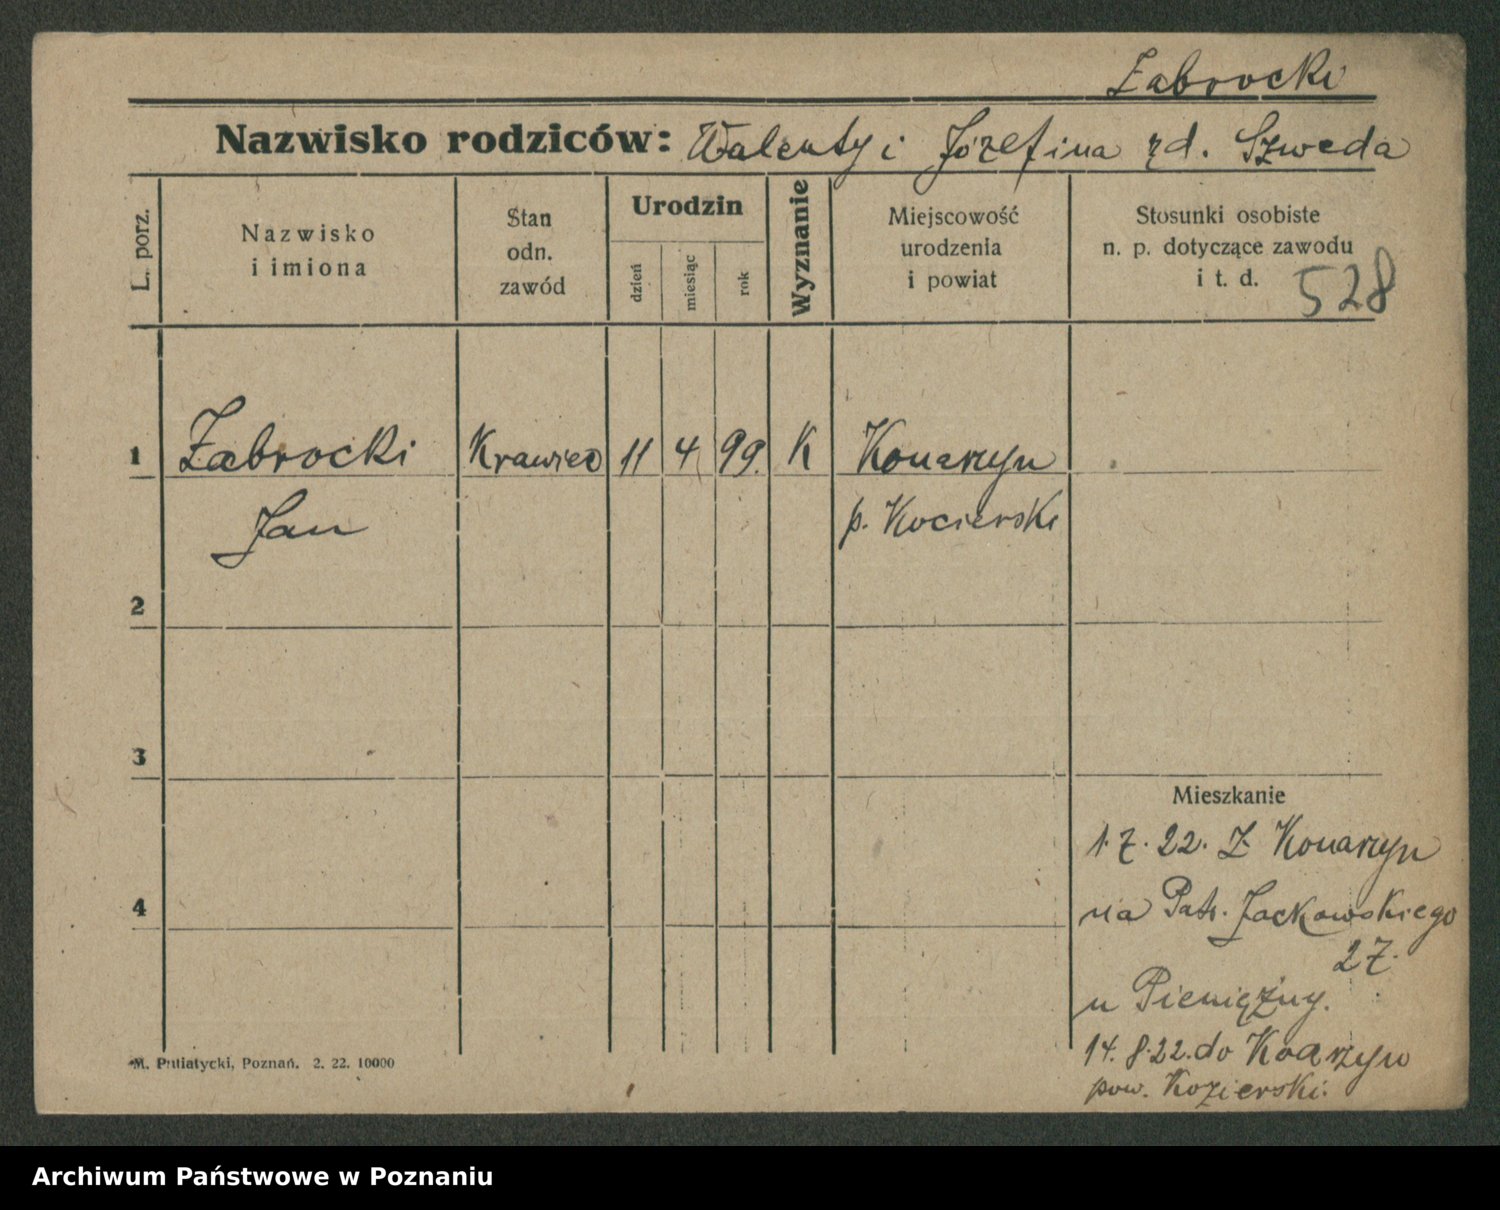 Zabrocki
Nazwisko rodziców: Walenty i Józefina rd. Szweda
L. porz.
Nazwisko
i imiona
Stan
odn.
zawód
Urodzin
dzień
miesiąc
rok
Wyznanie
Miejscowość
urodzenia
i powiat
Stosunki osobiste
n. p. dotyczące zawodu
i t. d.
528
1 Zabrocki Krawiec 11 4 99. K Konarzyn
Jan p. Kocierski
2
3
Mieszkanie
1.7.22. Z Konarzyn
4
na Patr. Jackowskiego
27.
u Pieniężny.
14.8.22. do Koarzyn
pow. Kozierski.
M. Putiatycki, Poznań. 2. 22. 10000
Archiwum Państwowe w Poznaniu